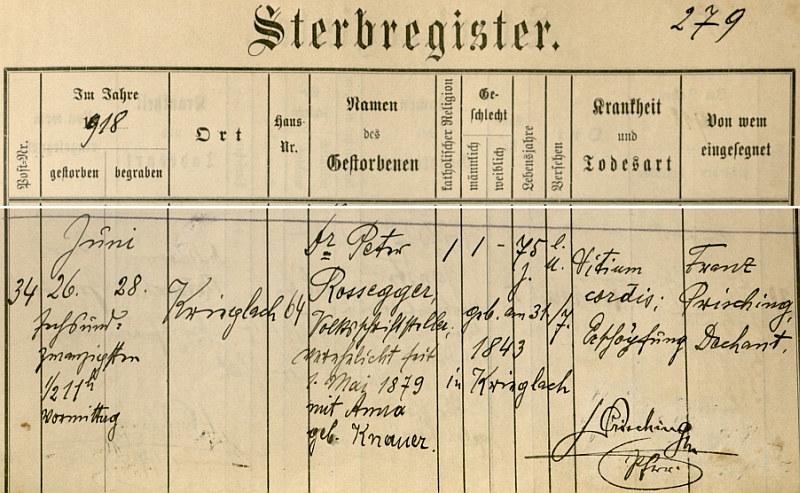 Sterbregister.
279
Post-Nr.
Im Jahre
1918
gestorben
begraben
Ort
Haus-
Nr.
Namen
des
Gestorbenen
katholischer Religion
Ge-
schlecht
männlich
weiblich
Lebensjahre
Versehen
Krankheit
und
Todesart
Von wem
eingesegnet
Juni
34
26.
28.
sechsund-
zwanzigsten
1/2 11h
Vormittag
Krieglach
64
Dr Peter
Rossegger,
Volksschriftsteller,
verehelicht seit
1. Mai 1879
mit Anna
geb. Knauer.
1
1
-
75
J.
geb. am 31./7.
1843
in Krieglach
Vitium
cordis;
Erschöpfung
Franz
Prisching,
Dechant.
Prisching
Pfrr.